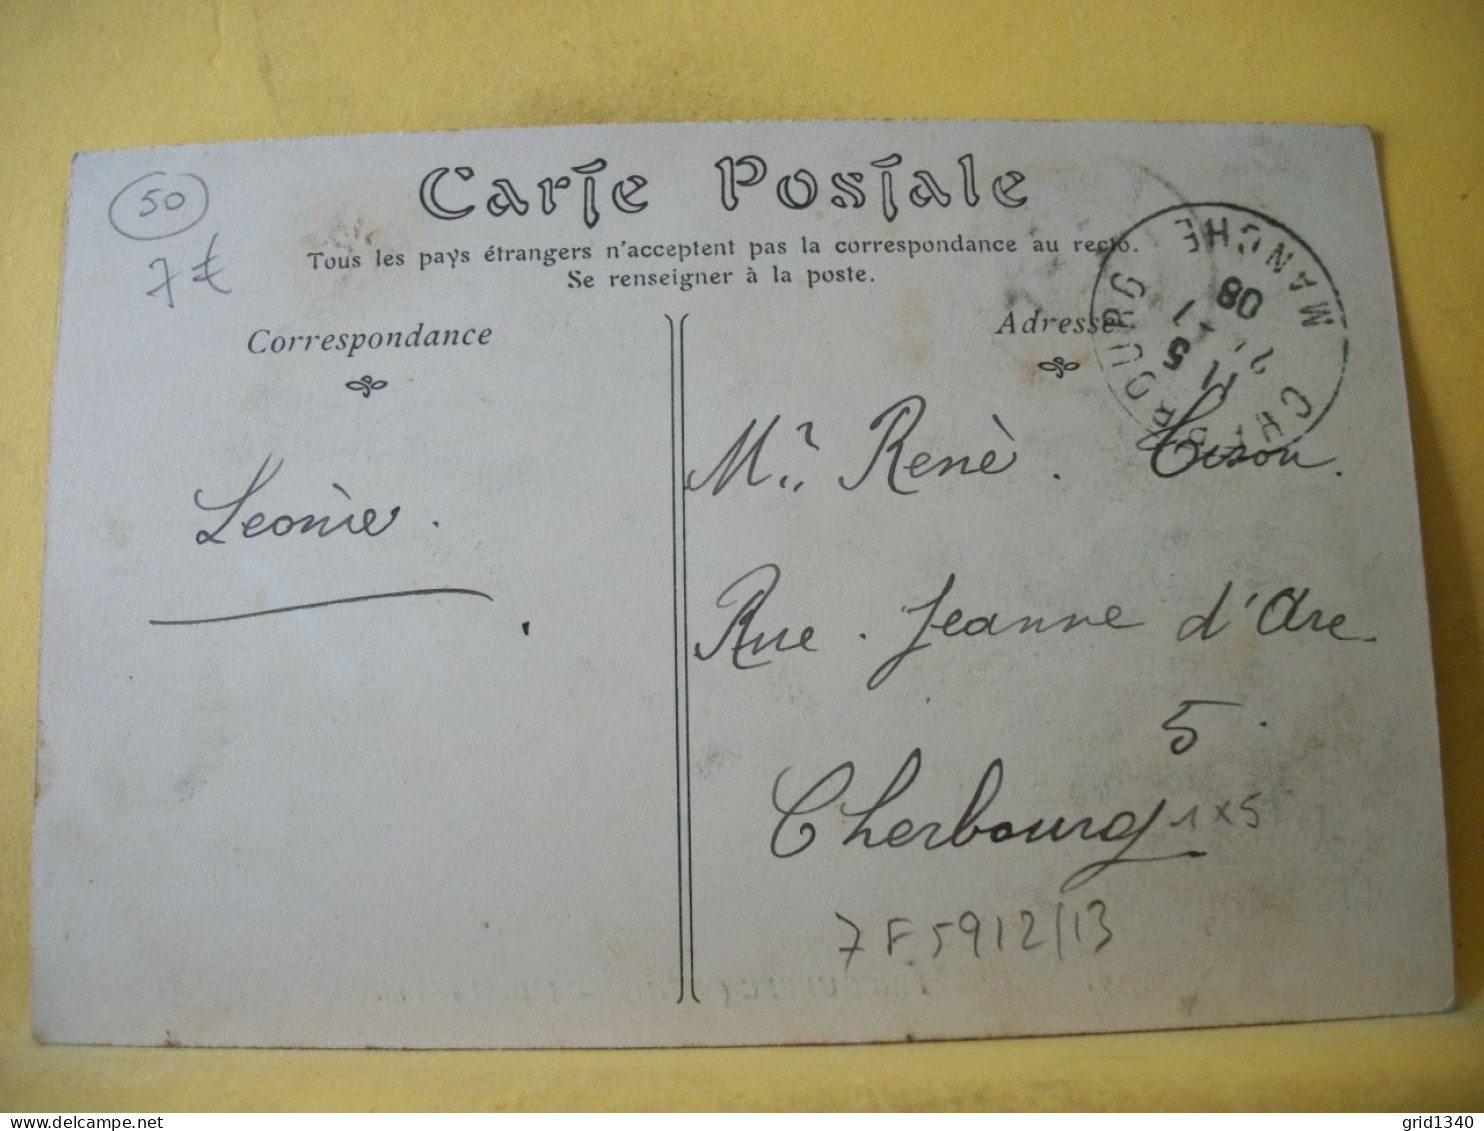 Carte Postale
Tous les pays étrangers n'acceptent pas la correspondance au recto.
Se renseigner à la poste.
50
7€
Correspondance
Adresse
CHERBOURG
MANCHE
08
Leonie.
Mr. Renè.
Rue. Jeanne d'Arc.
5.
Cherbourg
1x5
7F5912/13
grid1340